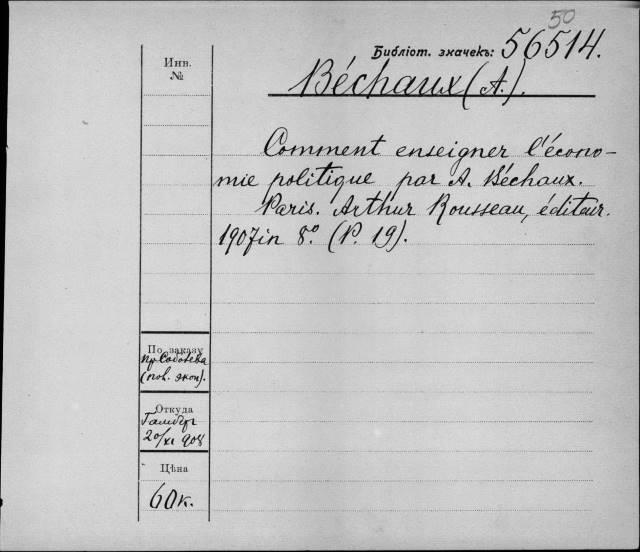 50
Библіот. значекъ: 56514.
Инв.
№
Béchaux (A.).
Comment enseigner l'écono-
mie politique par A. Béchaux.
Paris. Arthur Rousseau, éditeur.
1907 in 8.° (P. 19).
По заказу
пр. Соболева
(пол. экон).
Откуда
20/XI 908
Цѣна
60 к.